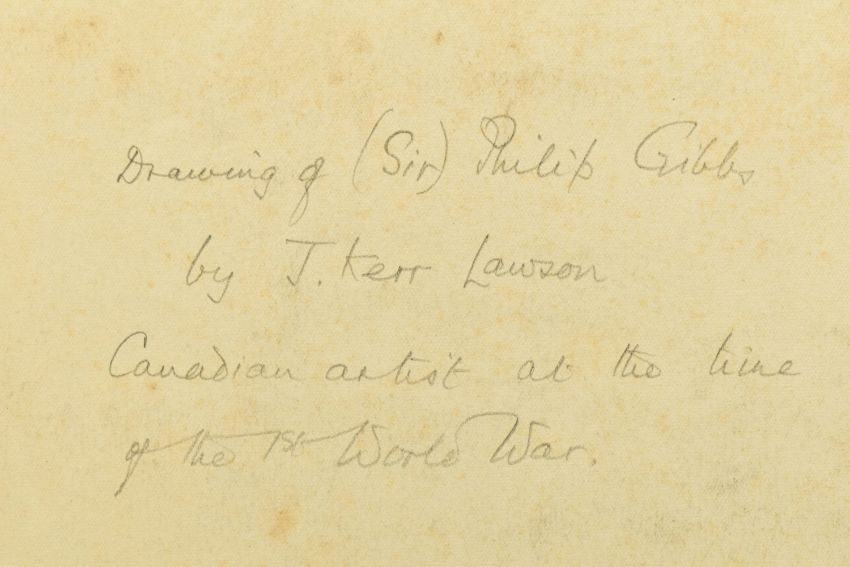 Drawing of (Sir) Philip Gibbs
by J. Kerr Lawson
Canadian artist at the time
of the 1st World War.